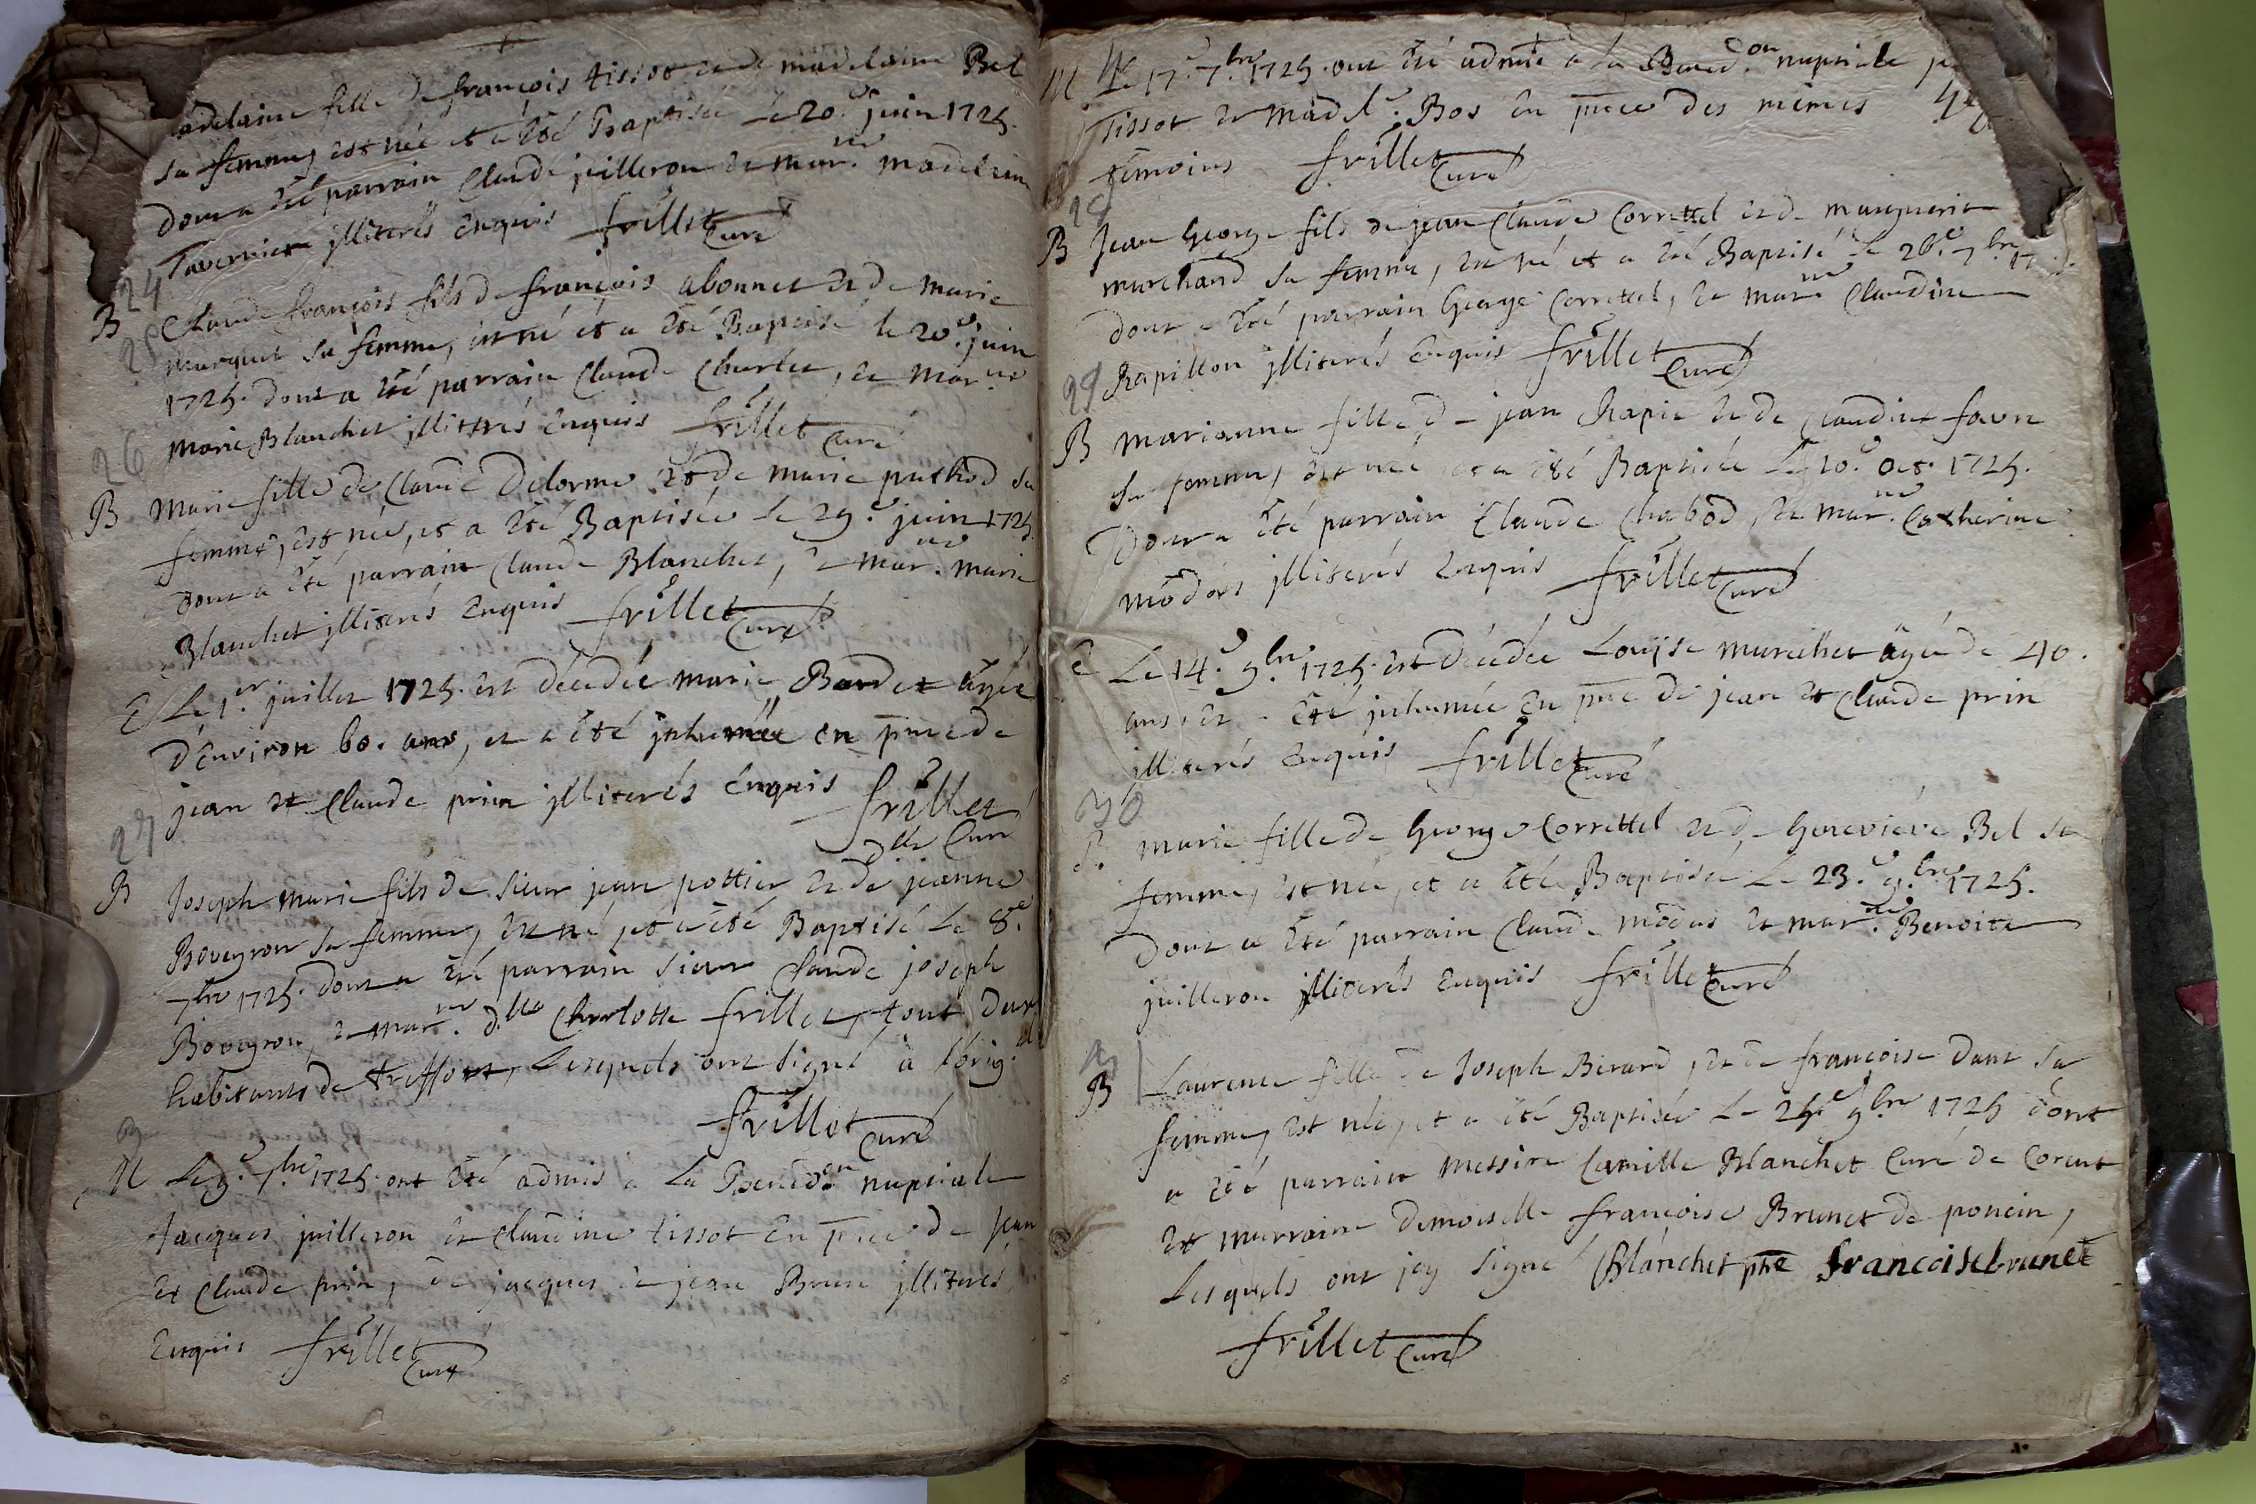 adelaine fille de françois tissot et de madelaine Bel
sa femme, est née et a été Baptisée Le 20.e juin 1725.
dont a été parrain Claude juilleron et mar.ne madelaine
Tavernier jlliterés enquis frillet Curé
24
B Claude françois fils de françois abonnet et de marie
25
marquet sa femme, est né et a été Baptisé le 20.e juin
1725. dont a été parrain Claude Charlet, et mar.ne
marie Blanchet jlliterés enquis frillet Curé
26
B Marie fille de Claude Delorme et de marie puthod sa
femme, est née, et a été Baptisée Le 29.e juin 1725.
dont a été parrain Claude Blanchet, et mar.ne marie
Blanchet jlliterés enquis frillet Curé
E Le 1.er juillet 1725. est décédée marie Bardet agée
d'environ 60. ans, et a été jnhumée en pnce de
jean et Claude prin jlliterés enquis frillet
Curé
27
B Joseph marie fils de sieur jean pottier et de jeanne
Boveyron sa femme, est né, et a été Baptisé Le 8.e
7bre 1725. dont a été parrain sieur Claude joseph
Boveyron, et mar.ne d.lle Charlotte frillet, tous deux
habitants de treffort, Lesquels ont signé à l'orig.al
frillet Curé
M Le 9.e 7.bre 1725. ont été admis a La Bened.on nuptiale
Jacques juilleron et Claudine tissot en pnce de jean
et Claude prin, de jacques et jean Brun jlliterés
enquis frillet Curé
M Le 17.e 7.bre 1725. ont été admis a La Bened.on nuptiale
Tissot et Madel.e Bos en pnce des mêmes
témoins frillet Curé
28
B Jean George fils de jean Claude Correttel et de marguerite
marchand sa femme, est né et a été Baptisé le 26.e 7.bre
dont a été parrain George Correttel, et mar.ne Claudine
Rapillon jlliterés enquis frillet Curé
29
B Marianne fille de jean Rapie et de Claudine favre
sa femme, est née et a été Baptisée Le 10.e oct. 1725.
Dont a été parrain Claude Chabod, et mar.ne Catherine
modas jlliterés enquis frillet Curé
E Le 14.e 9.bre 1725. est décédée Louyse murcihet agée de 40.
ans, et a été jnhumée en pnce de jean et Claude prin
jlliterés enquis frillet Curé
30
B. marie fille de George Correttel et de Geneviéve Bel sa
femme, est née, et a été Baptisée Le 23.e 9.bre 1725.
Dont a été parrain Claude modas et mar.ne Benoite
juilleron jlliterés enquis frillet Curé
31
B Laurence fille de Joseph Birard, et de françoise dant sa
femme, est née, et a été Baptisée Le 25.e 9.bre 1725 dont
a été parrain Messire Camille Blanchet Curé de Corent
et marraine demoiselle françoise Brunet de poncin,
Lesquels ont jcy signé Blanchet ptre francoise brunet
frillet Curé